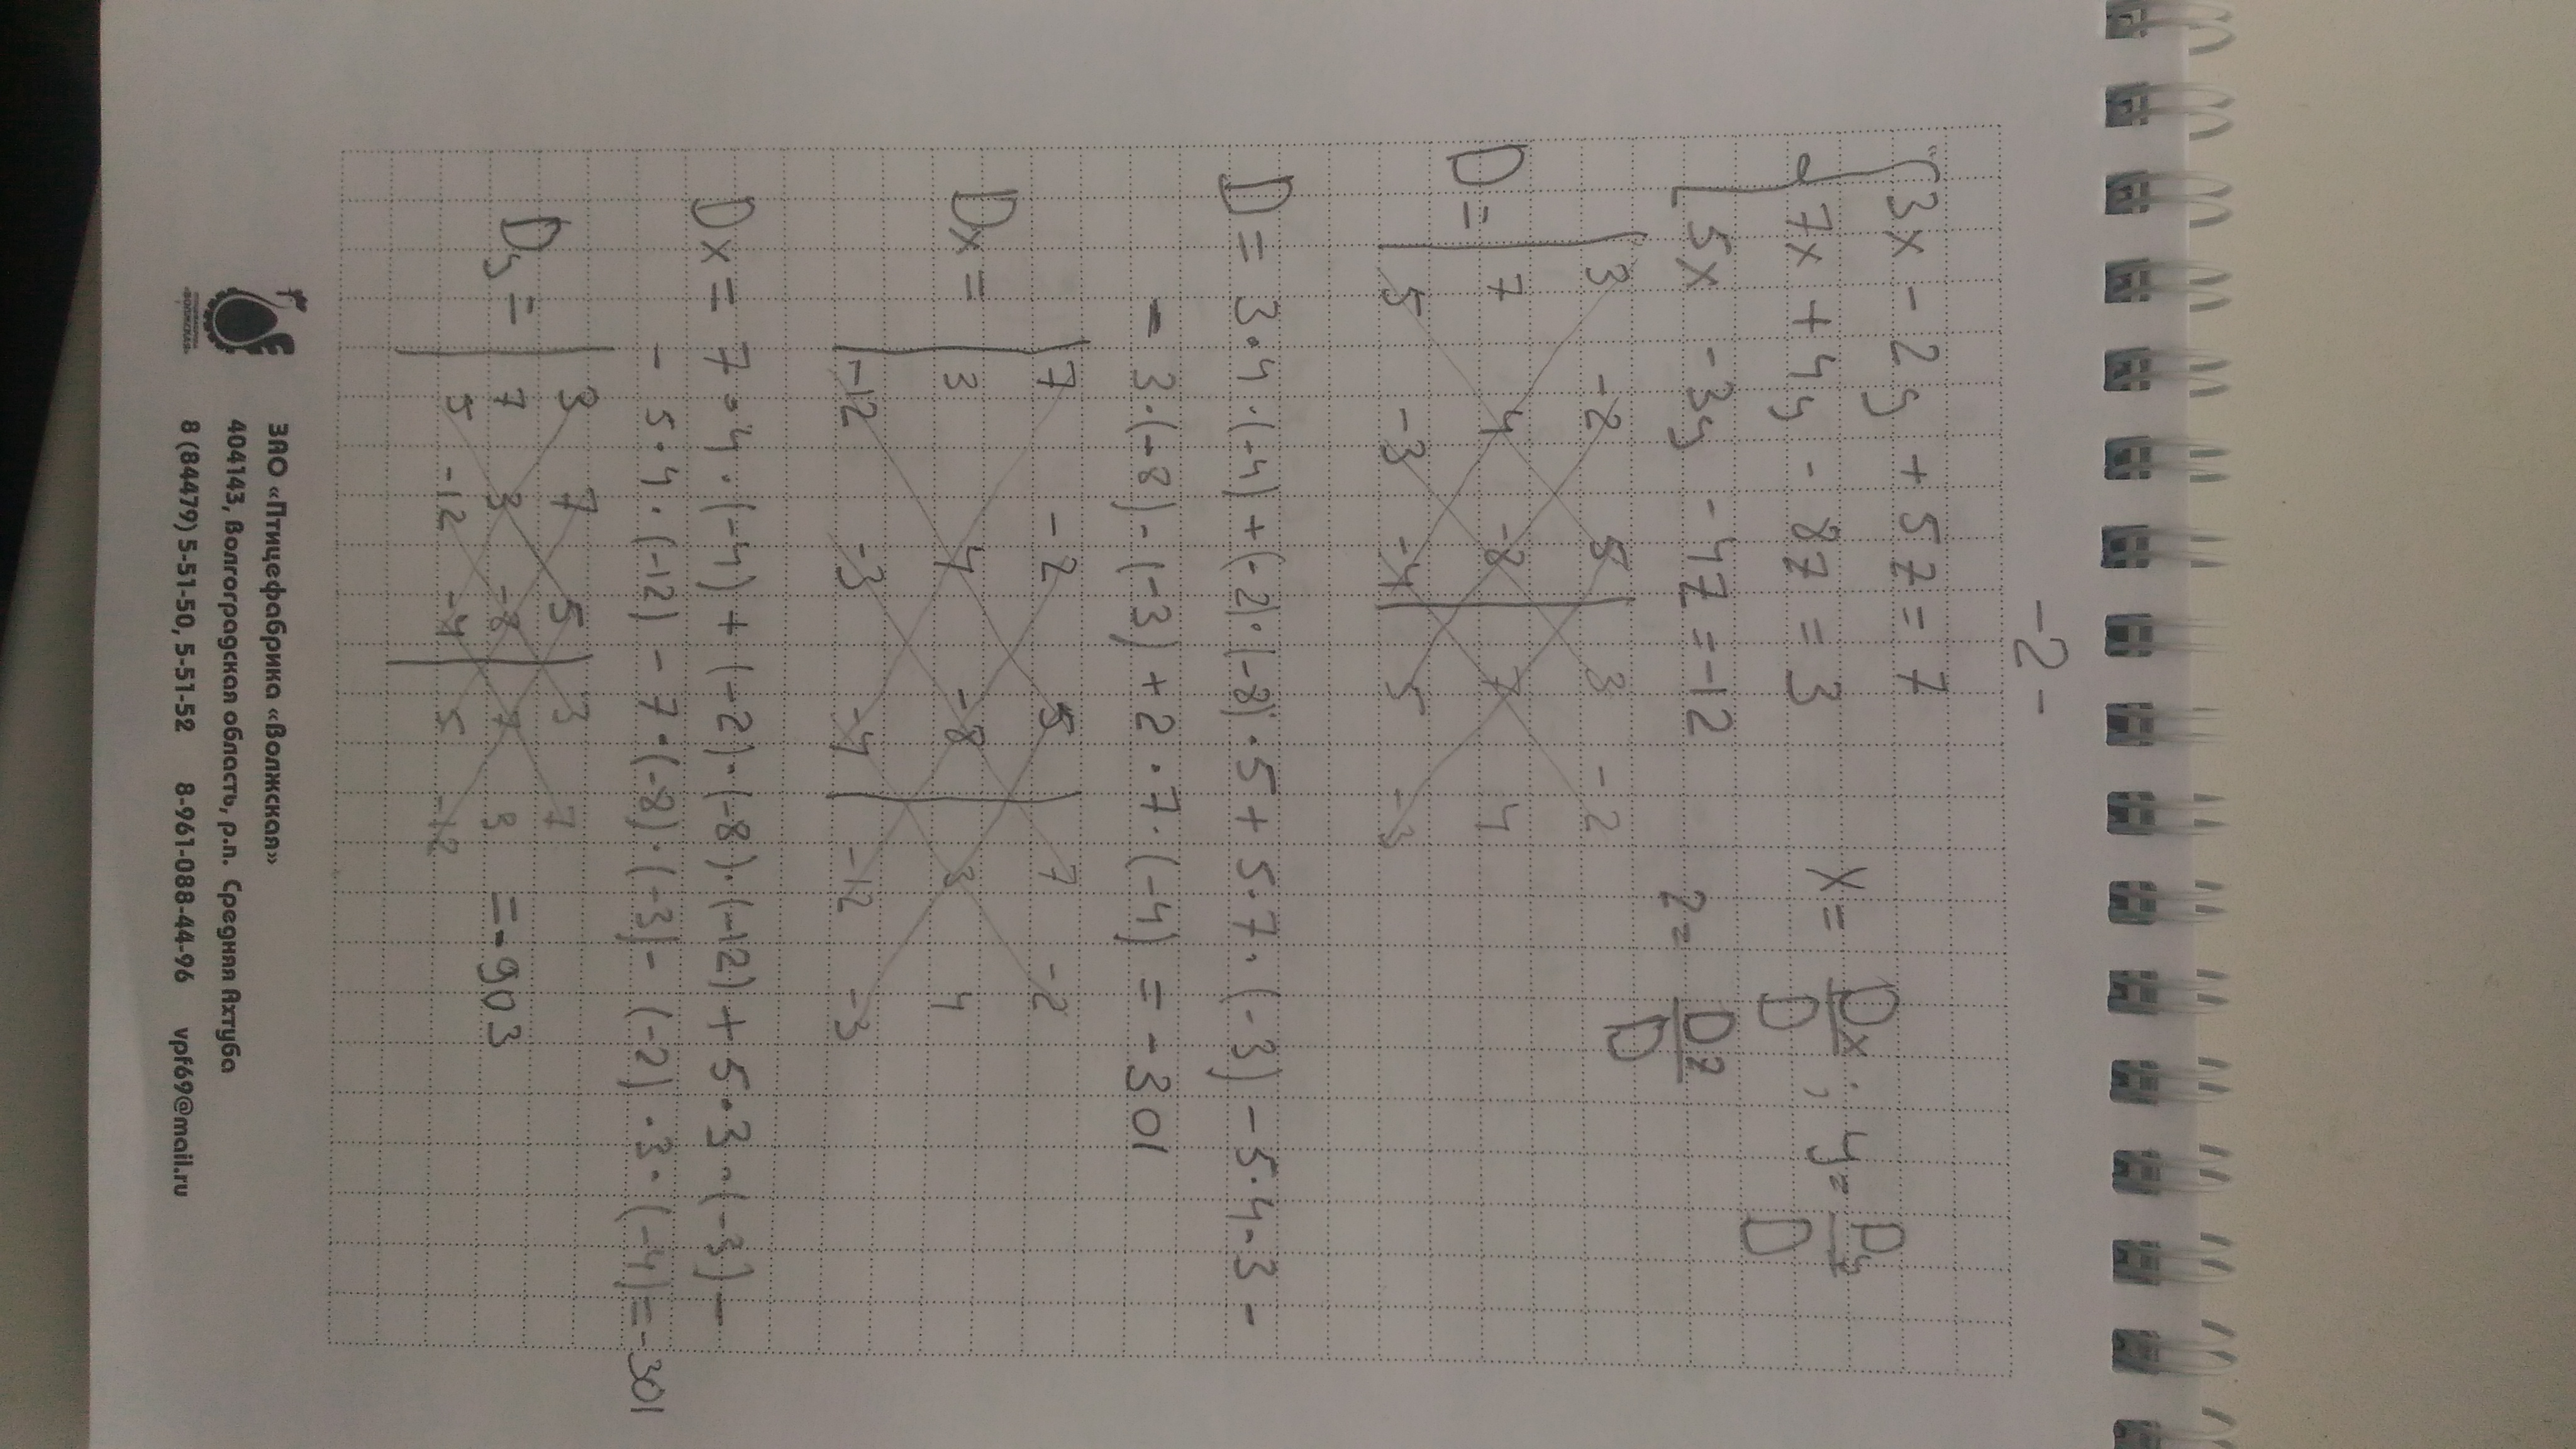 -2-
3x - 2y + 5z = 7
7x + 4y - 8z = 3
5x - 3y - 4z = -12
x = Dx/D ; y = Dy/D
z = Dz/D
3 -2 5 3 -2
D = 7 4 -8 7 4
5 -3 -4 5 -3
D = 3·4·(-4) + (-2)·(-8)·5 + 5·7·(-3) - 5·4·3 -
- 3·(-8)·(-3) + 2·7·(-4) = -301
7 -2 5 7 -2
Dx = 3 4 -8 3 4
-12 -3 -4 -12 -3
Dx = 7·4·(-4) + (-2)·(-8)·(-12) + 5·3·(-3) -
- 5·4·(-12) - 7·(-8)·(-3) - (-2)·3·(-4) = -301
3 7 5 3 7
Dy = 7 3 -8 7 3 = -903
5 -12 -4 5 -12
ВОЛЖСКАЯ
ЗАО «Птицефабрика «Волжская»
404143, Волгоградская область, р.п. Средняя Ахтуба
8 (84479) 5-51-50, 5-51-52 8-961-088-44-96 vpf69@mail.ru